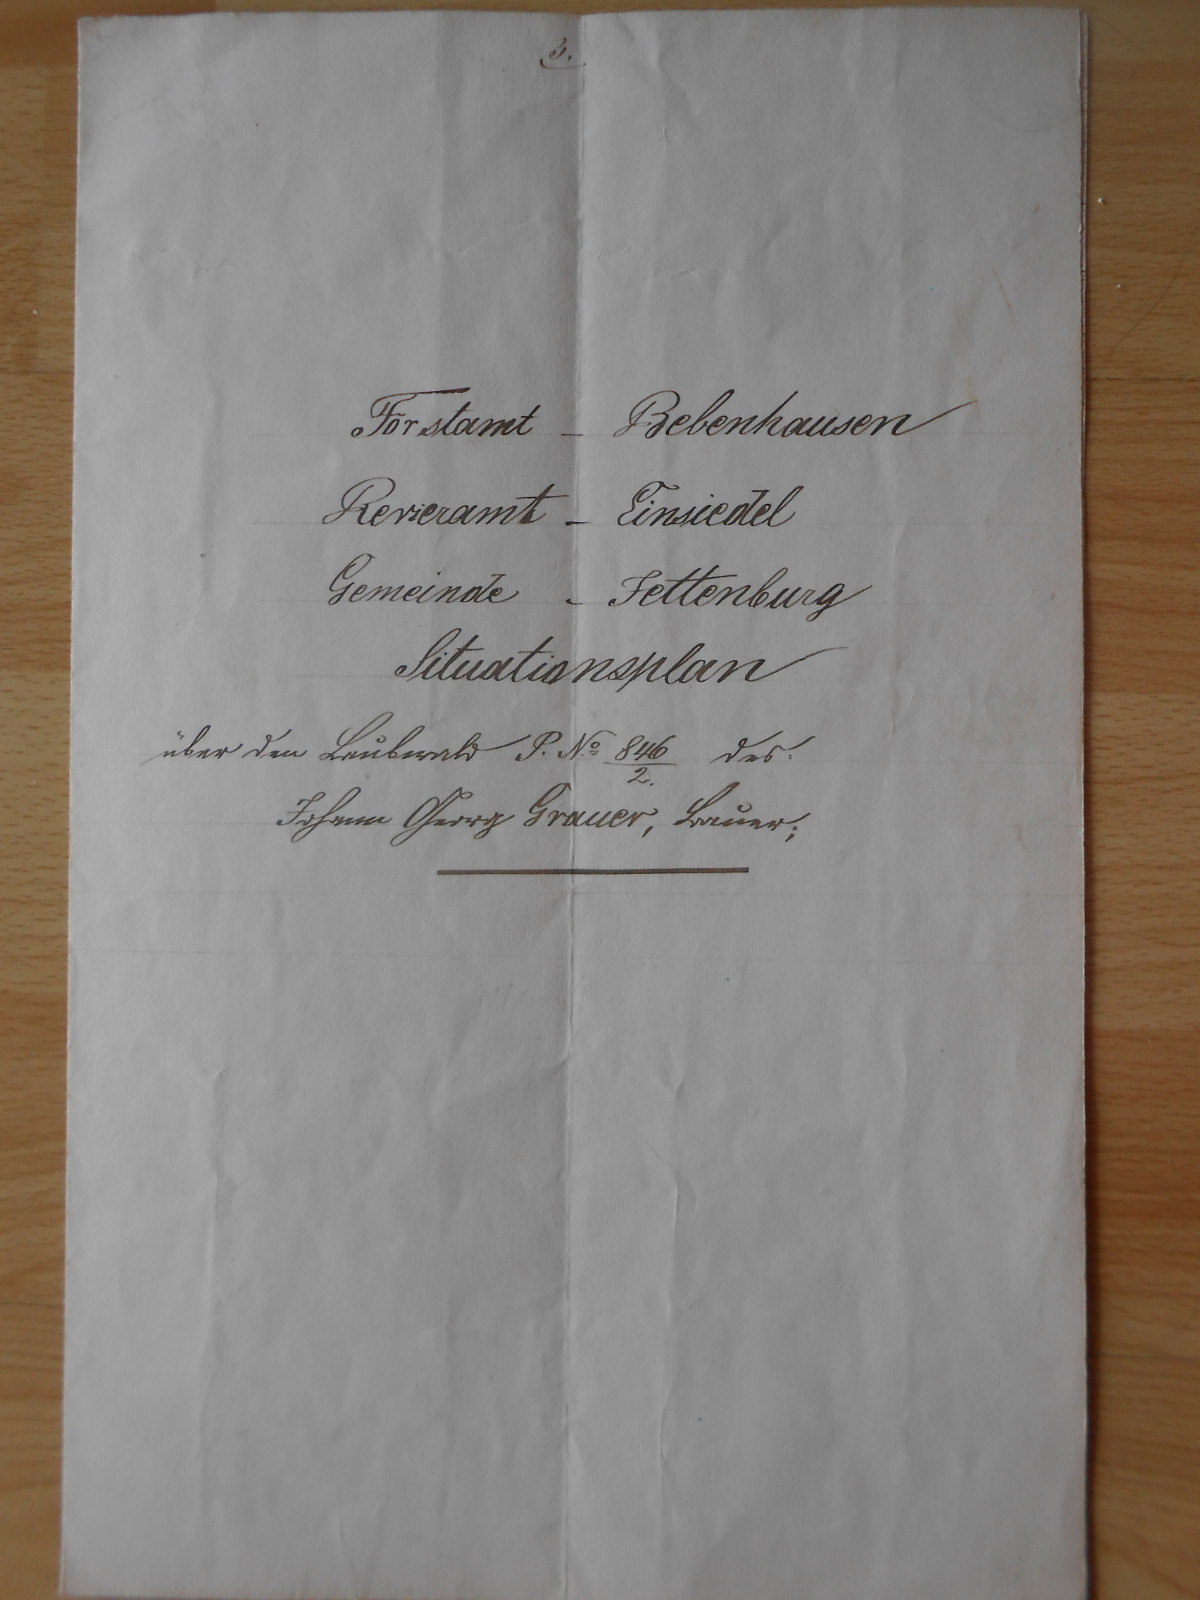 3.
Forstamt - Bebenhausen
Revieramt - Einsiedel
Gemeinde - Jettenburg
Situationsplan
über den Laubwald P. No 846/2. des:
Johann Georg Grauer, Bauer;